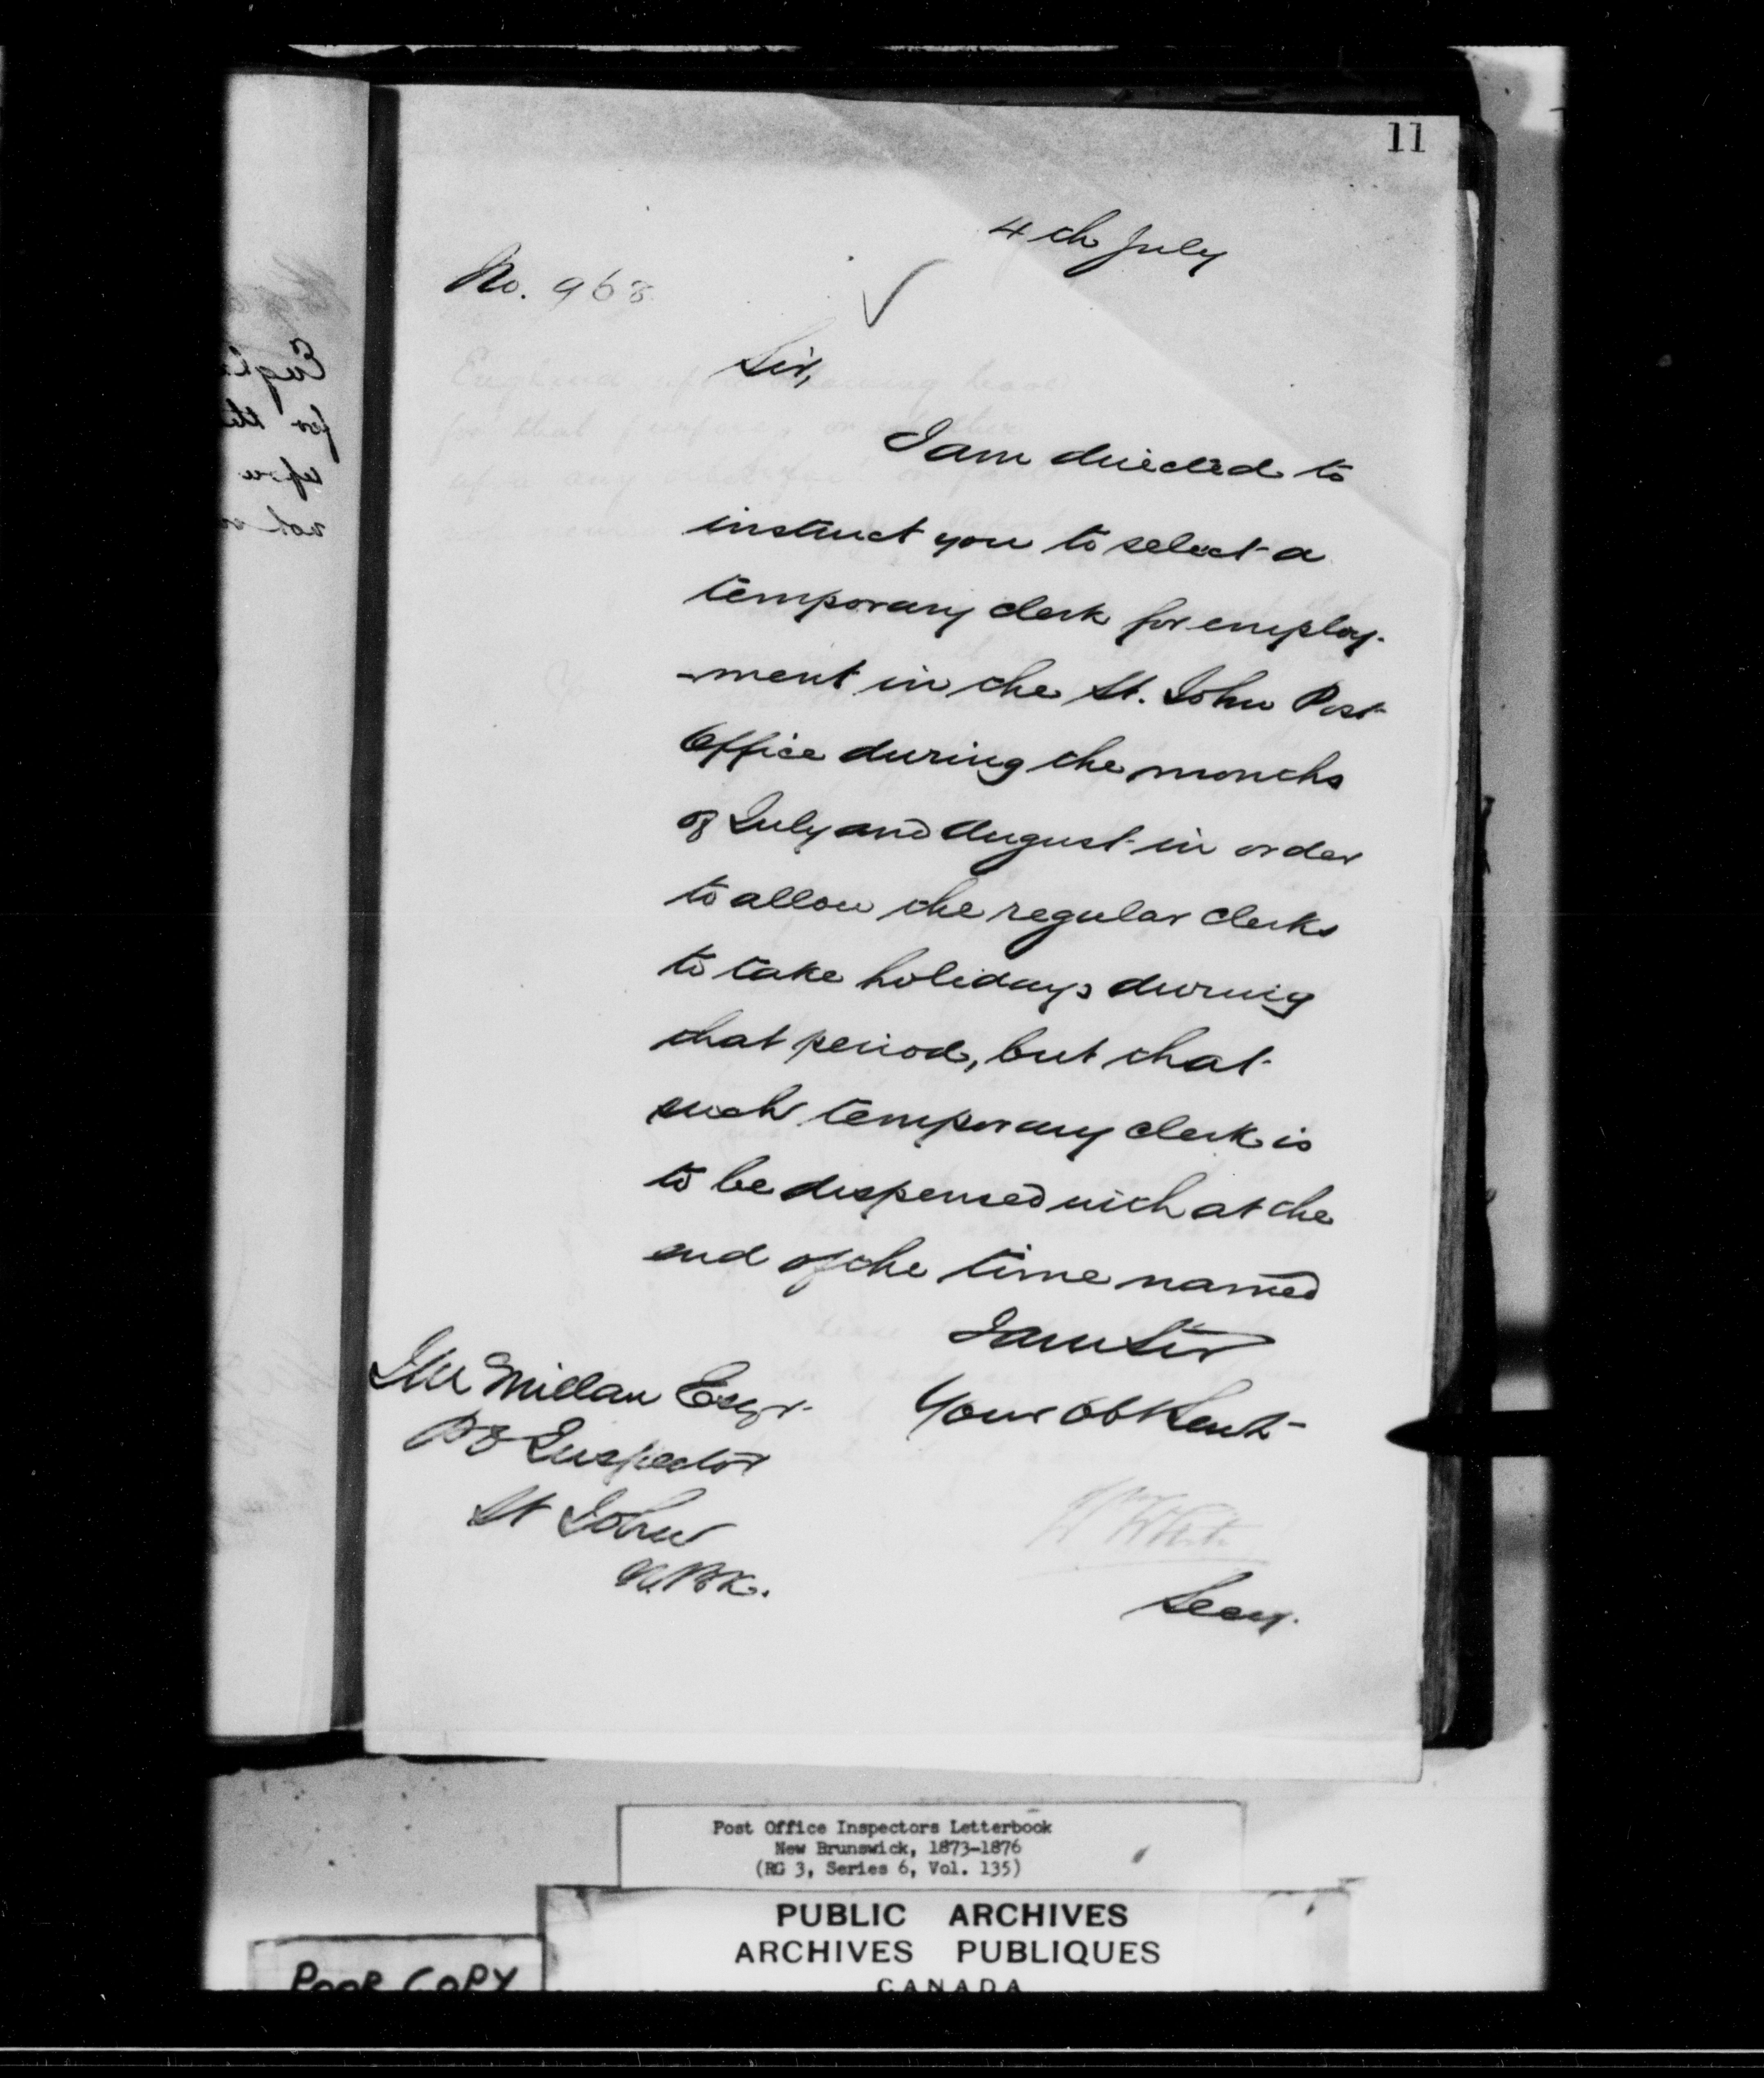 11
4th July
No. 968
Sir,
I am directed to
instruct you to select a
temporary clerk for employ-
-ment in the St. John Post
Office during the months
of July and August in order
to allow the regular clerks
to take holidays during
that period, but that
such temporary clerk is
to be dispensed with at the
end of the time named
I am Sir
Your Obt Servt
J Mc Millan Esqr.
P O Inspector
St John
N. BK.
W White
Secy.
Post Office Inspectors Letterbook
New Brunswick, 1873-1876
(RG 3, Series 6, Vol. 135)
PUBLIC ARCHIVES
ARCHIVES PUBLIQUES
CANADA
POOR COPY